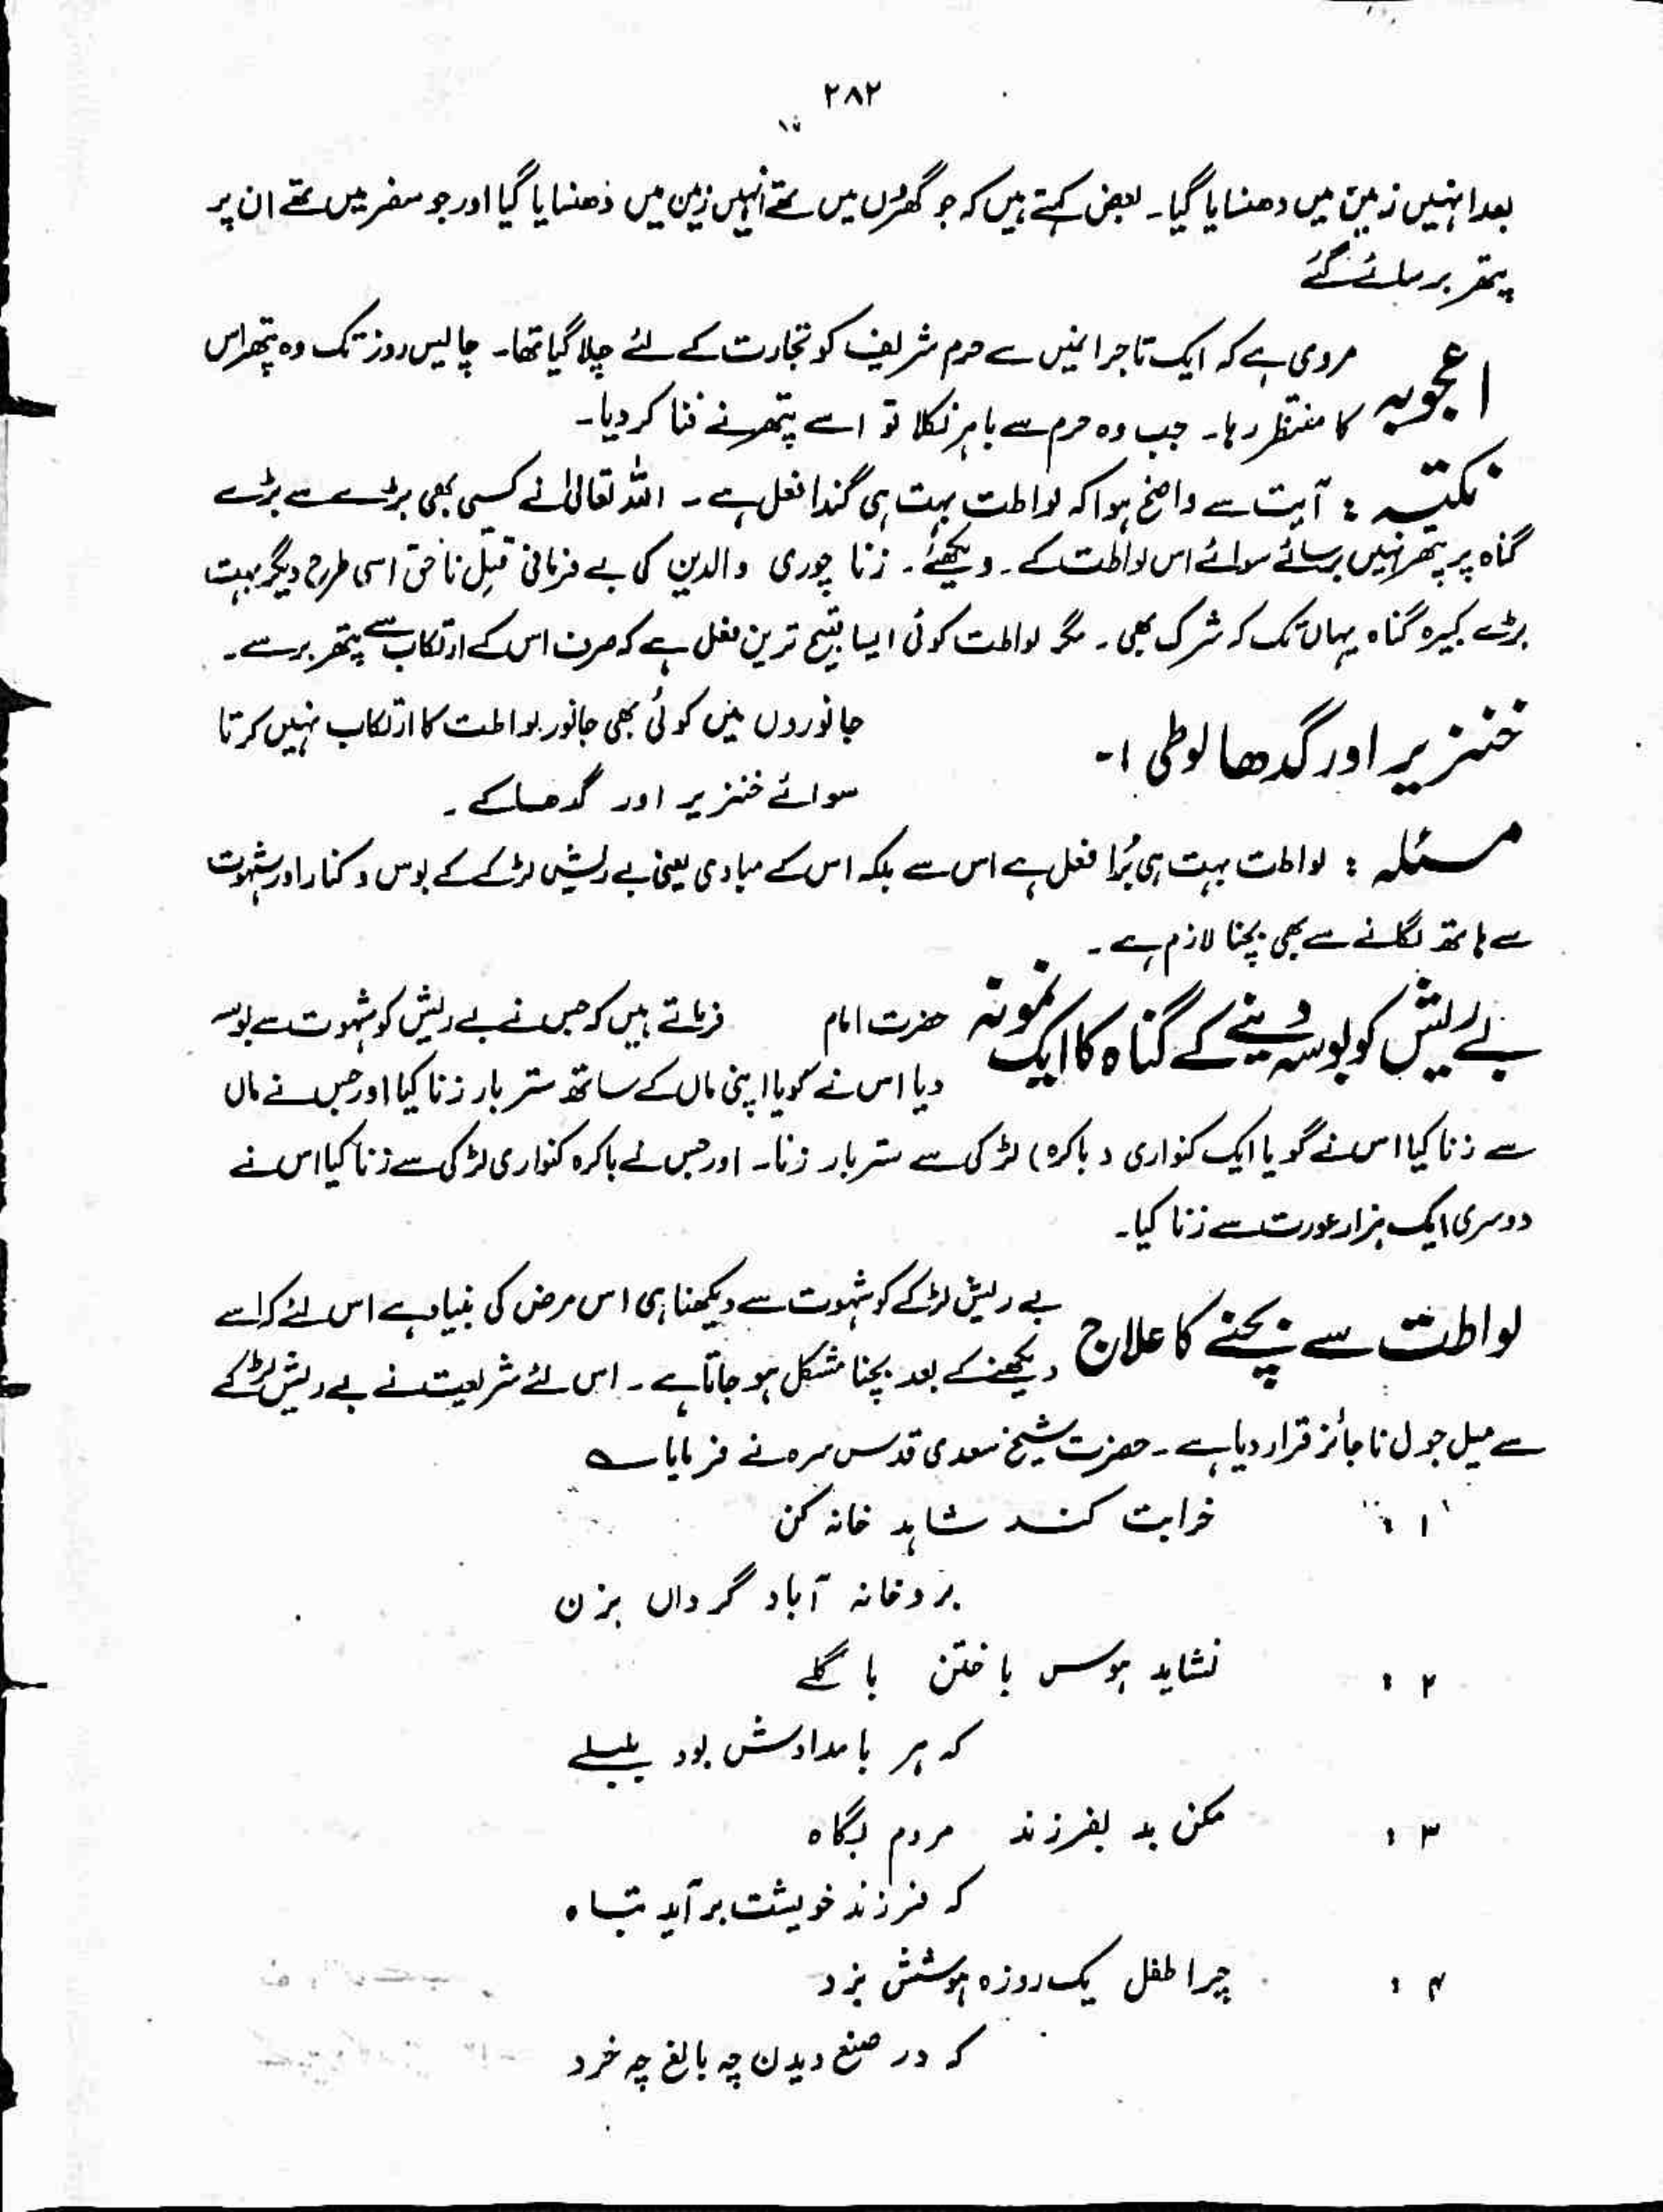 ۲۸۲
بعد انہیں زمین میں دھنسایا گیا۔ بعض کہتے ہیں کہ جو گھروں میں تھے انہیں زمین میں دھنسایا گیا اور جو سفر میں تھے ان پر
پتھر برسائے گئے
اعجوبہ مروی ہے کہ ایک تاجر انہیں سے حرم شریف کو تجارت کے لئے چلا گیا تھا۔ چالیس روز تک وہ پتھر اس
کا منتظر رہا۔ جب وہ حرم سے باہر نکلا تو اسے پتھر نے فنا کر دیا۔
نکتہ : آیت سے واضح ہوا کہ لواطت بہت ہی گندا فعل ہے۔ اللہ تعالیٰ نے کسی بھی بڑے سے بڑے
گناہ پر پتھر نہیں برسائے سوائے اس لواطت کے۔ دیکھئے۔ زنا چوری والدین کی بے فرمانی قتلِ ناحق اسی طرح دیگر بہت
بڑے کبیرہ گناہ یہاں تک کہ شرک بھی۔ مگر لواطت کوئی ایسا قبیح ترین فعل ہے کہ صرف اس کے ارتکاب سے پتھر برسے۔
خنزیر اور گدھا لوطی :- جانوروں میں کوئی بھی جانور لواطت کا ارتکاب نہیں کرتا
سوائے خنزیر اور گدھا کے۔
مسئلہ : لواطت بہت ہی بُرا فعل ہے اس سے بلکہ اس کے مبادی یعنی بے ریش لڑکے کے بوس و کنار اور شہوت
سے ہاتھ لگانے سے بھی بچنا لازم ہے۔
بے ریش کو بوسہ دینے کے گناہ کا ایک نمونہ حضرت امام فرماتے ہیں کہ جس نے بے ریش کو شہوت سے بوسہ
دیا اس نے گویا اپنی ماں کے ساتھ ستر بار زنا کیا اور جس نے ماں
سے زنا کیا اس نے گویا ایک کنواری (باکرہ) لڑکی سے ستر بار زنا۔ اور جس نے باکرہ کنواری لڑکی سے زنا کیا اس نے
دوسری ایک ہزار عورت سے زنا کیا۔
لواطت سے بچنے کا علاج بے ریش لڑکے کو شہوت سے دیکھنا ہی اس مرض کی بنیاد ہے اس لئے کہ اسے
دیکھنے کے بعد بچنا مشکل ہو جاتا ہے۔ اس لئے شریعت نے بے ریش لڑکے
سے میل جول ناجائز قرار دیا ہے۔ حضرت شیخ سعدی قدس سرہ نے فرمایا ؎
۱ : خرابت کند شاہد خانہ کن
برو خانہ آباد گرداں بزن
۲ : نشاید ہوس باختن با گلے
کہ ہر بامدادش بود بلبلے
۳ : مکن بد بفرزند مردم نگاہ
کہ فرزند خویشت برآید تباہ
۴ : چرا طفل یک روزہ ہوشش نبرد
کہ در صنع دیدن چہ بالغ چہ خرد